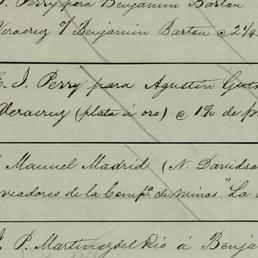 J. Perry para Benjamin Barton
Veracruz y Benjamin Barton @ 2 1/4
E. J. Perry para Agustin Gut
Veracruz (plata ú oro) @ 1% de
Manuel Madrid (N. Davidso
viadores de la Comp.ª de minas "La
J. P. Martinez del Rio á Benja